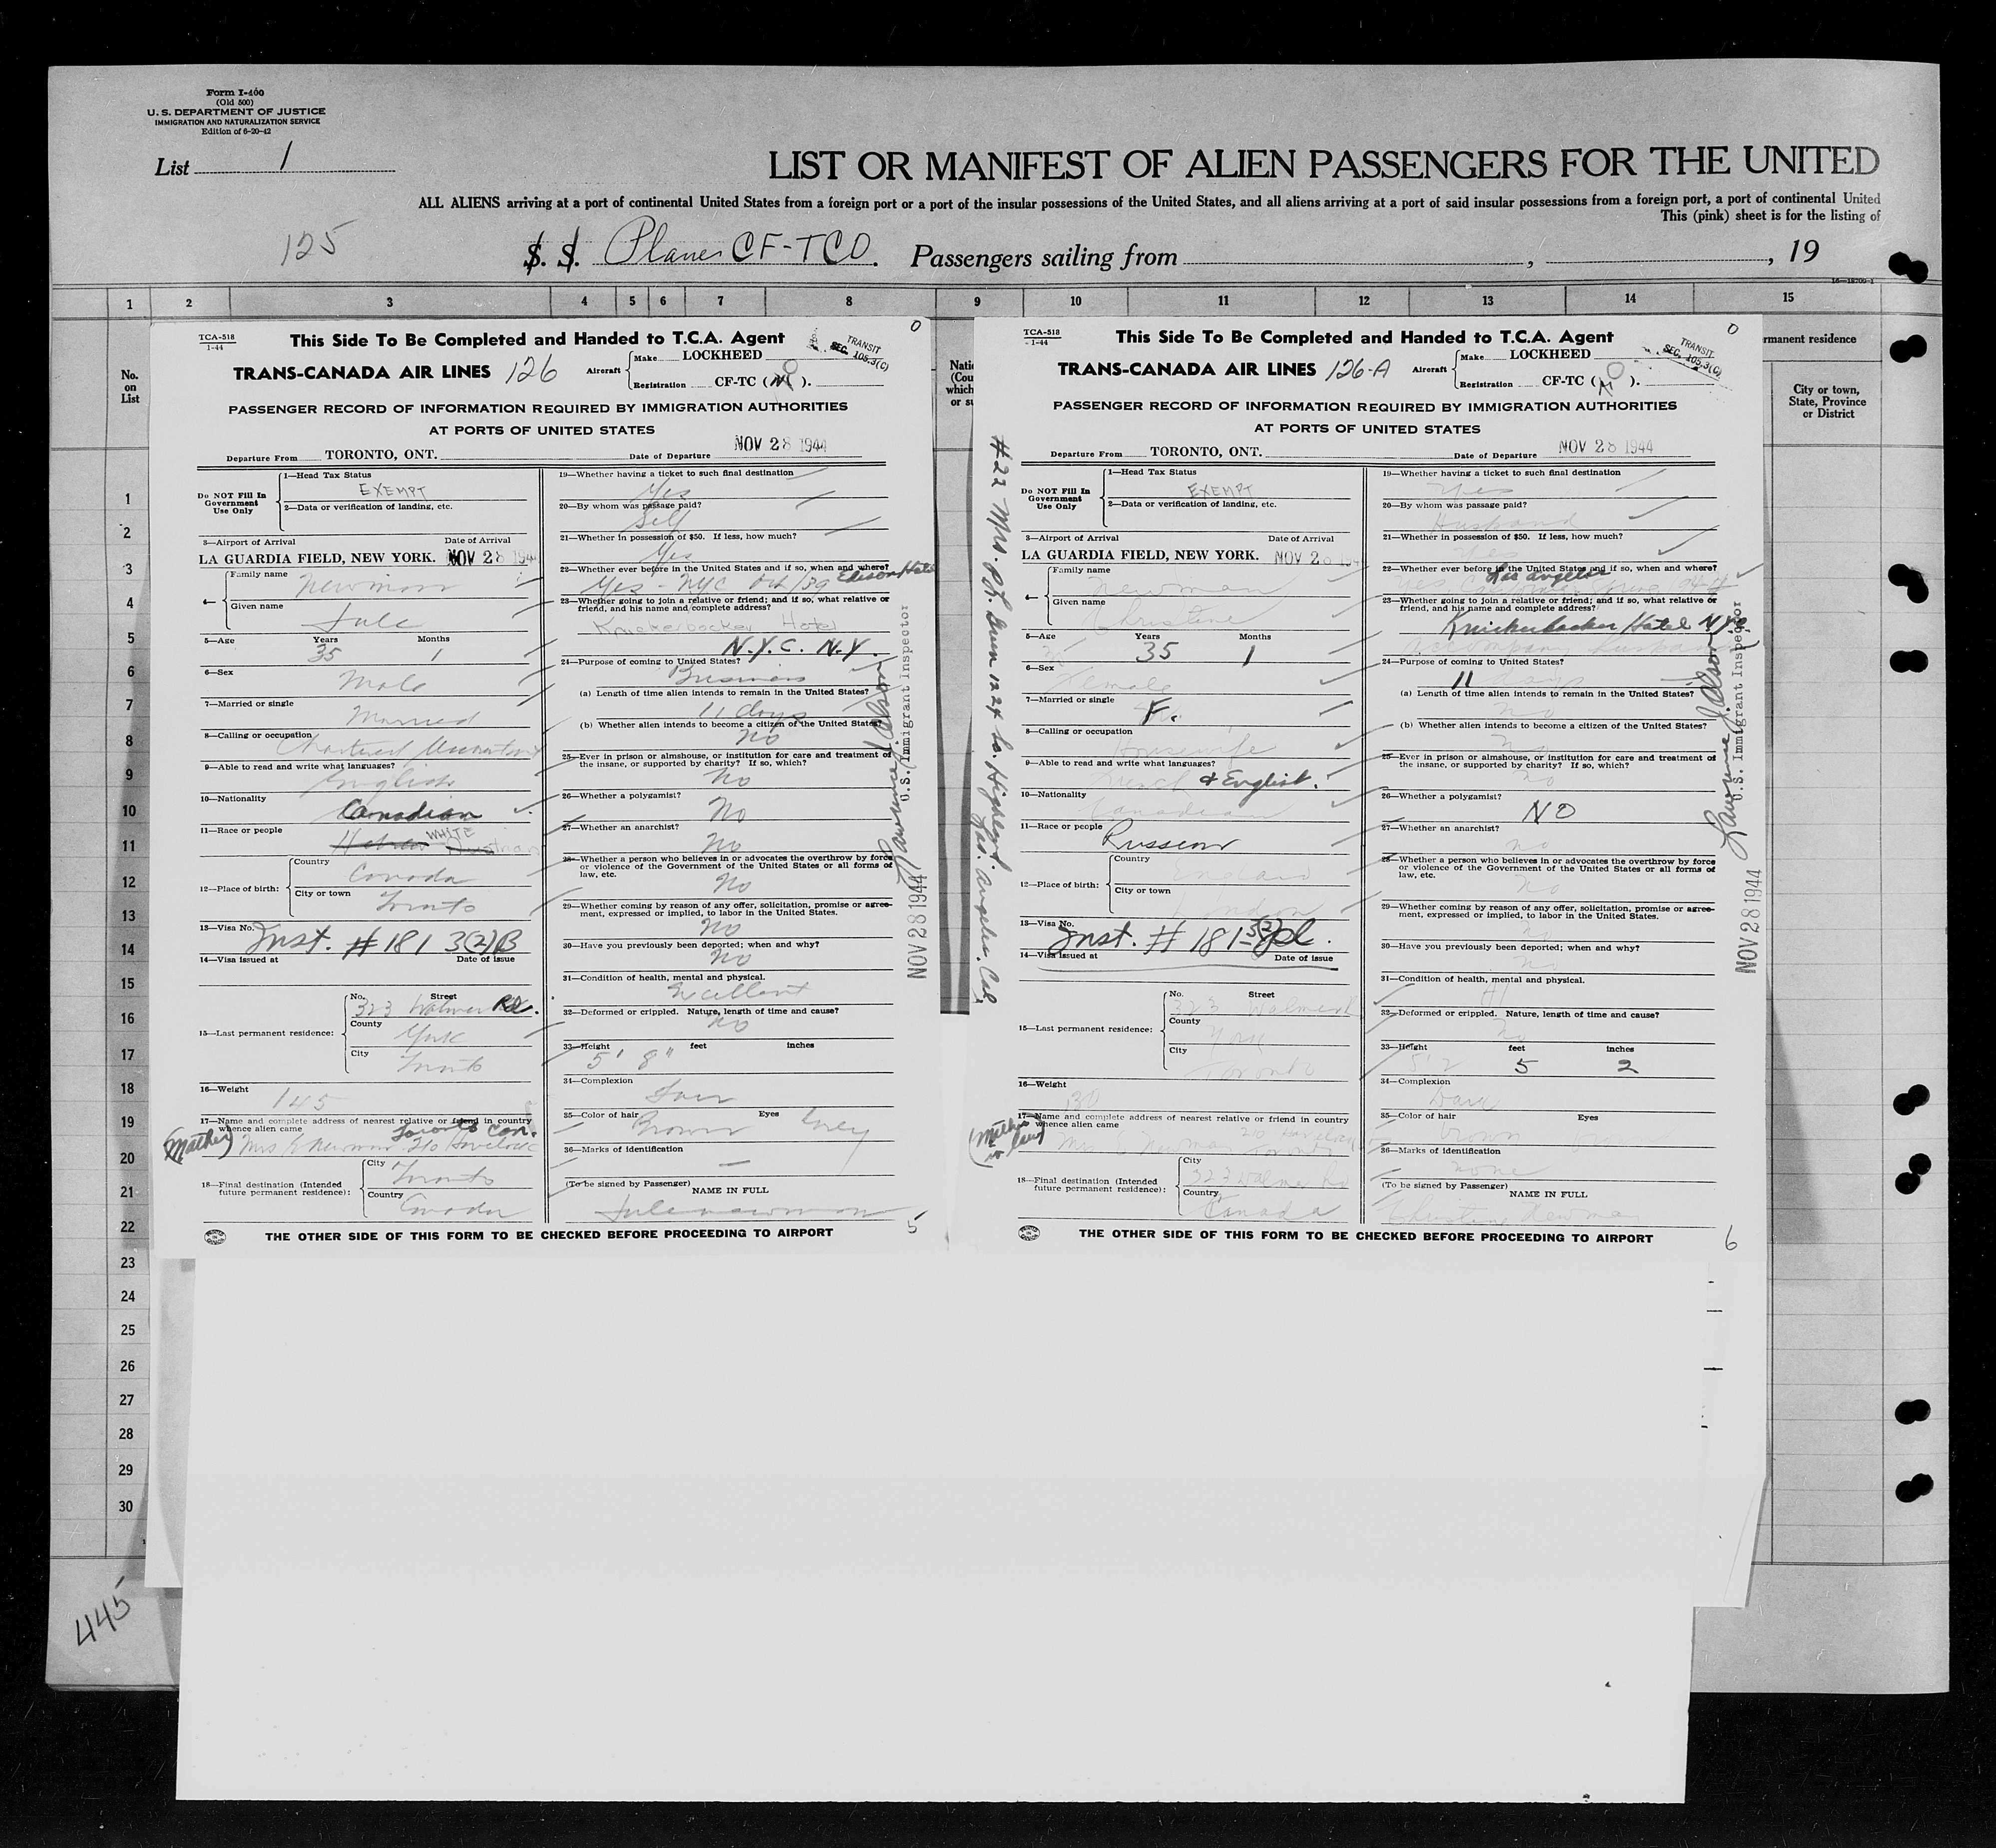 Form I-400
(Old 500)
U. S. DEPARTMENT OF JUSTICE
IMMIGRATION AND NATURALIZATION SERVICE
Edition of 6-20-42
List 1
LIST OR MANIFEST OF ALIEN PASSENGERS FOR THE UNITED
ALL ALIENS arriving at a port of continental United States from a foreign port or a port of the insular possessions of the United States, and all aliens arriving at a port of said insular possessions from a foreign port, a port of continental United
This (pink) sheet is for the listing of
125
S. S. Plane CF-TCO. Passengers sailing from , , 19
16—18700-1
1 2 3 4 5 6 7 8 9 10 11 12 13 14 15
No. on List
rmanent residence
City or town, State, Province or District
TCA-518
1-44
This Side To Be Completed and Handed to T.C.A. Agent
0
TRANSIT
SEC. 105.3(C)
TRANS-CANADA AIR LINES 126
Aircraft
Make LOCKHEED
Registration CF-TC ( O ).
PASSENGER RECORD OF INFORMATION REQUIRED BY IMMIGRATION AUTHORITIES
AT PORTS OF UNITED STATES
Departure From TORONTO, ONT. Date of Departure NOV 28 1944
Do NOT Fill In
Government
Use Only
1—Head Tax Status
EXEMPT
2—Data or verification of landing, etc.
3—Airport of Arrival Date of Arrival
LA GUARDIA FIELD, NEW YORK. NOV 28 1944
4— Family name Newman
Given name Jule
5—Age Years Months
35 1
6—Sex
Male
7—Married or single
Married
8—Calling or occupation
Chartered Accountant
9—Able to read and write what languages?
English
10—Nationality
Canadian
11—Race or people
Hebrew WHITE
12—Place of birth:
Country
Canada
City or town
Toronto
13—Visa No.
Inst. # 181 3(2)B
14—Visa issued at Date of issue
15—Last permanent residence:
No. Street
323 Walmer Rd.
County
York
City
Toronto
16—Weight
145
17—Name and complete address of nearest relative or friend in country
whence alien came Toronto Can.
(Mother) Mrs Newman 210
18—Final destination (Intended
future permanent residence):
City
Toronto
Country
Canada
19—Whether having a ticket to such final destination
Yes
20—By whom was passage paid?
Self
21—Whether in possession of $50. If less, how much?
Yes
22—Whether ever before in the United States and if so, when and where?
Yes - NYC Oct/39 Edison Hotel
23—Whether going to join a relative or friend; and if so, what relative or
friend, and his name and complete address?
Knickerbocker Hotel
N.Y.C. N.Y.
24—Purpose of coming to United States?
Business
(a) Length of time alien intends to remain in the United States?
11 days
(b) Whether alien intends to become a citizen of the United States?
No
25—Ever in prison or almshouse, or institution for care and treatment of
the insane, or supported by charity? If so, which?
No
26—Whether a polygamist?
No
27—Whether an anarchist?
No
28—Whether a person who believes in or advocates the overthrow by force
or violence of the Government of the United States or all forms of
law, etc.
No
29—Whether coming by reason of any offer, solicitation, promise or agree-
ment, expressed or implied, to labor in the United States.
No
30—Have you previously been deported; when and why?
No
31—Condition of health, mental and physical.
Excellent
32—Deformed or crippled. Nature, length of time and cause?
No
33—Height feet inches
5' 8"
34—Complexion
Fair
35—Color of hair Eyes
Brown Grey
36—Marks of identification
—
(To be signed by Passenger)
NAME IN FULL
Jule Newman
5
THE OTHER SIDE OF THIS FORM TO BE CHECKED BEFORE PROCEEDING TO AIRPORT
U.S. Immigrant Inspector
NOV 28 1944
TCA-518
1-44
This Side To Be Completed and Handed to T.C.A. Agent
0
TRANSIT
SEC. 105.3(C)
TRANS-CANADA AIR LINES 126-A
Aircraft
Make LOCKHEED
Registration CF-TC ( O ).
PASSENGER RECORD OF INFORMATION REQUIRED BY IMMIGRATION AUTHORITIES
AT PORTS OF UNITED STATES
Departure From TORONTO, ONT. Date of Departure NOV 28 1944
Do NOT Fill In
Government
Use Only
1—Head Tax Status
EXEMPT
2—Data or verification of landing, etc.
3—Airport of Arrival Date of Arrival
LA GUARDIA FIELD, NEW YORK. NOV 28 194
4— Family name Newman
Given name Christine
5—Age Years Months
35 1
6—Sex
Female
7—Married or single
F.
8—Calling or occupation
Housewife
9—Able to read and write what languages?
French & English.
10—Nationality
Canadian
11—Race or people
Russian
12—Place of birth:
Country
England
City or town
London
13—Visa No.
Inst. # 181-3(2)
14—Visa issued at Date of issue
15—Last permanent residence:
No. Street
323 Walmer Rd
County
York
City
Toronto
16—Weight
130
17—Name and complete address of nearest relative or friend in country
whence alien came
(Mother in law) Mrs Newman 210 Toronto
18—Final destination (Intended
future permanent residence):
City
323 Walmer Rd
Country
Canada
19—Whether having a ticket to such final destination
Yes
20—By whom was passage paid?
Husband
21—Whether in possession of $50. If less, how much?
Yes
22—Whether ever before in the United States and if so, when and where?
Los Angeles
23—Whether going to join a relative or friend; and if so, what relative or
friend, and his name and complete address?
Knickerbocker Hotel NYC
Accompany husband
24—Purpose of coming to United States?
11 days
(a) Length of time alien intends to remain in the United States?
No
(b) Whether alien intends to become a citizen of the United States?
No
25—Ever in prison or almshouse, or institution for care and treatment of
the insane, or supported by charity? If so, which?
No
26—Whether a polygamist?
NO
27—Whether an anarchist?
no
28—Whether a person who believes in or advocates the overthrow by force
or violence of the Government of the United States or all forms of
law, etc.
No
29—Whether coming by reason of any offer, solicitation, promise or agree-
ment, expressed or implied, to labor in the United States.
No
30—Have you previously been deported; when and why?
No
31—Condition of health, mental and physical.
A1
32—Deformed or crippled. Nature, length of time and cause?
No
33—Height feet inches
5'2 5 2
34—Complexion
Dark
35—Color of hair Eyes
brown
36—Marks of identification
none
(To be signed by Passenger)
NAME IN FULL
Christine Newman
6
THE OTHER SIDE OF THIS FORM TO BE CHECKED BEFORE PROCEEDING TO AIRPORT
#22 Mrs. 1224 So. Highland.
Los Angeles. Cal
U.S. Immigrant Inspector
NOV 28 1944
1
2
3
4
5
6
7
8
9
10
11
12
13
14
15
16
17
18
19
20
21
22
23
24
25
26
27
28
29
30
445